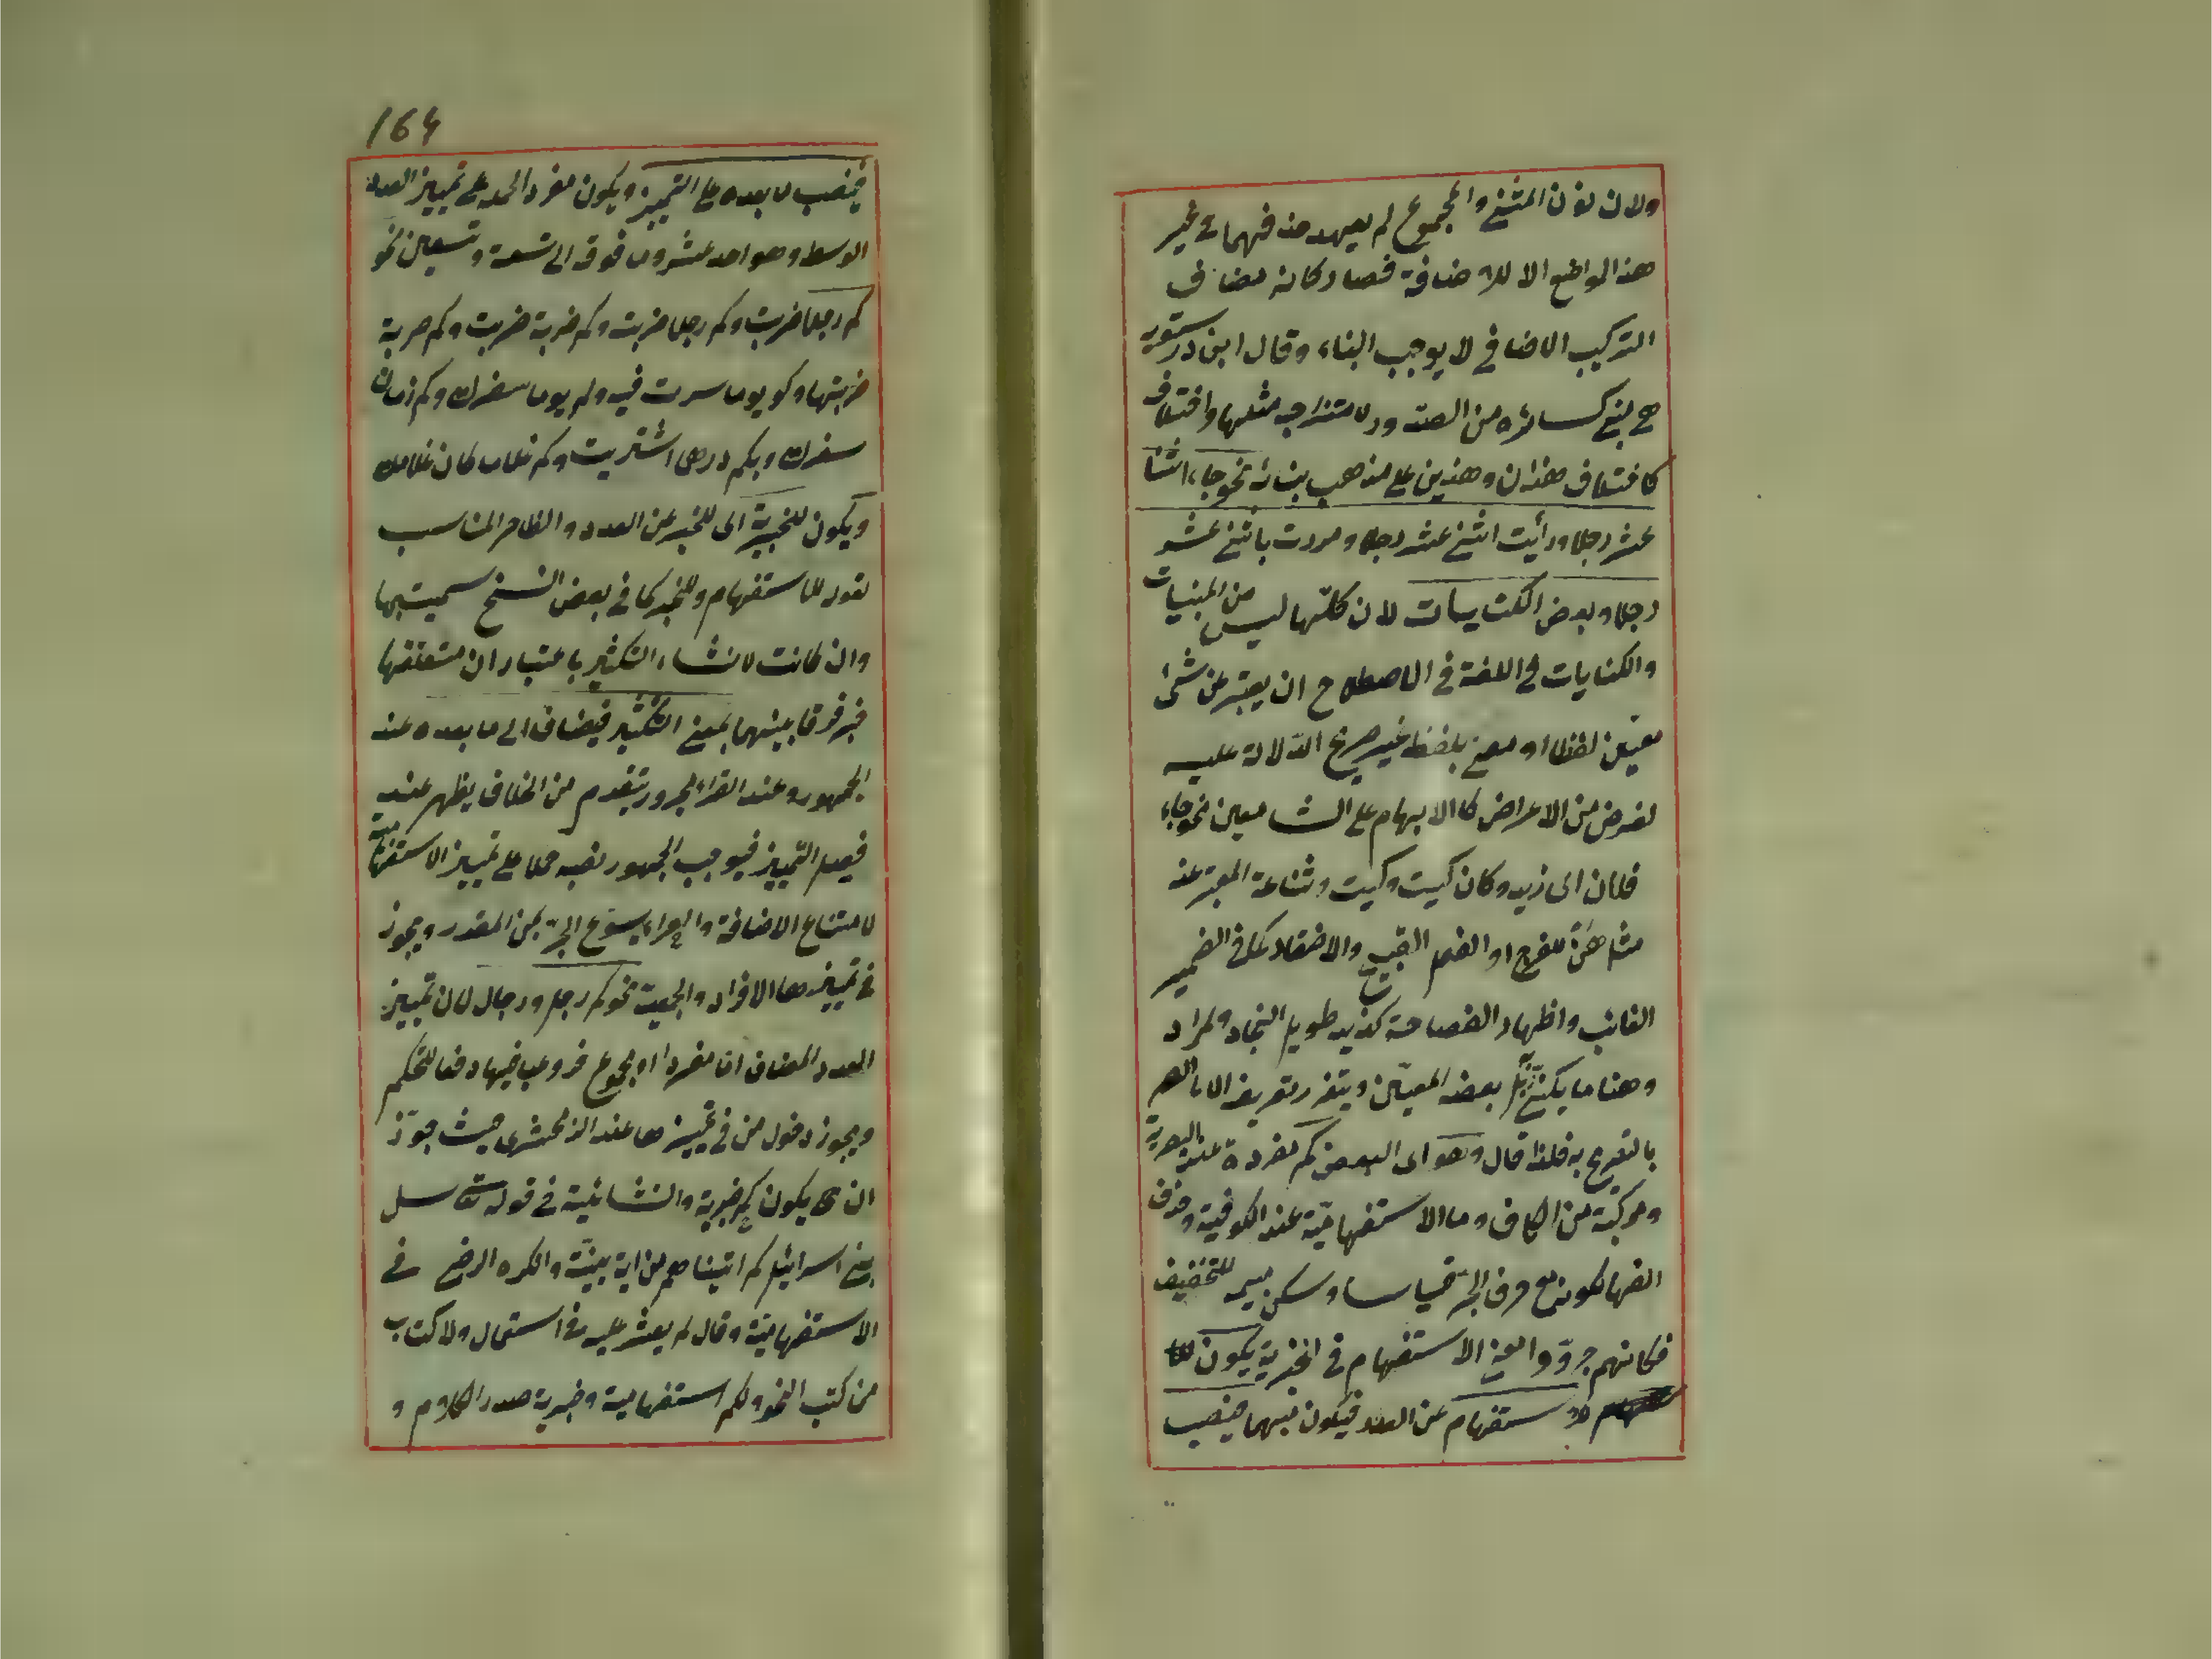 ولان نون المثنى والمجموع لم يعهد حذفهما فى غير
هذه المواضع الا للاضافة فصار كانه مضاف
التركيب الاضافى لا يوجب البناء وقال ابن درستويه
هى بنى كسائره من الصدور لامتزاجه مثلها واختلاف
كاختلاف هذان وهذين على مذهب بنائه نحو جاء اثنا
عشر رجلا ورأيت اثنى عشر رجلا ومررت باثنى عشر
رجلا وبعض الكنايات لان كلّها ليس من المبنيات
والكنايات فى اللغة فى الاصطلاح ان يعبّر عن شئ
معيّن لفظا او معنى بلفظ غير صريح الدّلالة عليه
لغرض من الاغراض كالابهام على السامعين نحو جاء
فلان اى زيد وكان كيت وكيت وشناعة المعبّر عنه
مثل هنٌ للفرج او الفعل القبيح والاختصار كما فى الضمير
الغائب واظهار الفصاحة كزيد طويل النجاد والمراد
وهنا ما يكنى به بعضه المعيّن ويتعذر تعريفه الا
بالتصريح به فلذا قال وهو اى البعض كم مفردة عند البصرية
ومركبّة من الكاف وما الاستفهاميّة عند الكوفية وحذف
الفها لكونها مع حرف الجرّ قياسا وسكن ميمه للتخفيف
فكانهم جرّدوا معنى الاستفهام فى الخبرية يكون
للاستفهام عن العدد فيكون مبهما فينصب
164
فينصب ما بعده على التمييز ويكون مفردا لحمله على تمييز العدد
الوسط وهو احد عشر وما فوقه الى تسعة وتسعين نحو
كم رجلا ضربت وكم رجلا ضربته وكم ضربة ضربت وكم ضربة
ضربتها وكم يوما سرت فيه وكم يوما سفرك وكم زمان
سفرك وبكم درهما اشتريت وكم غلاما كان غلامك
ويكون للخبرية اى للخبر عن العدد والظاهر المناسب
لقوله للاستفهام وللخبر كما فى بعض النسخ سميت بها
وان كانت لانشاء التكثير باعتبار ان متعلقها
خبر فرقا بينهما بمعنى التكثير فيضاف الى ما بعده عند
الجمهور وعند الفراء مجرور بتقدم من الخلاف يظهر عند
فصل التمييز فيوجب الجمهور نصبه حملا على تمييز الاستفهامية
لامتناع الاضافة والفراء يسوغ الجرّ بمن المقدر ويجوز
فى تمييزها الافراد والجمعية نحو كم رجل ورجال لان تمييز
العدد المضاف اما مفردا او مجموع فروعى فيها دفعا للتحكم
ويجوز دخول من فى تمييزها عند الزمخشرى حيث جوّز
ان يكون كم خبرية وانشائية فى قوله تعالى سل
بنى اسرائيل كم اتيناهم من اية بينّة وانكره الرضى فى
الاستفهاميّة وقال لم يعثر عليه فى استعمال ولا كتاب
من كتب النحو ولكم استفهامية وخبرية صدر الكلام و